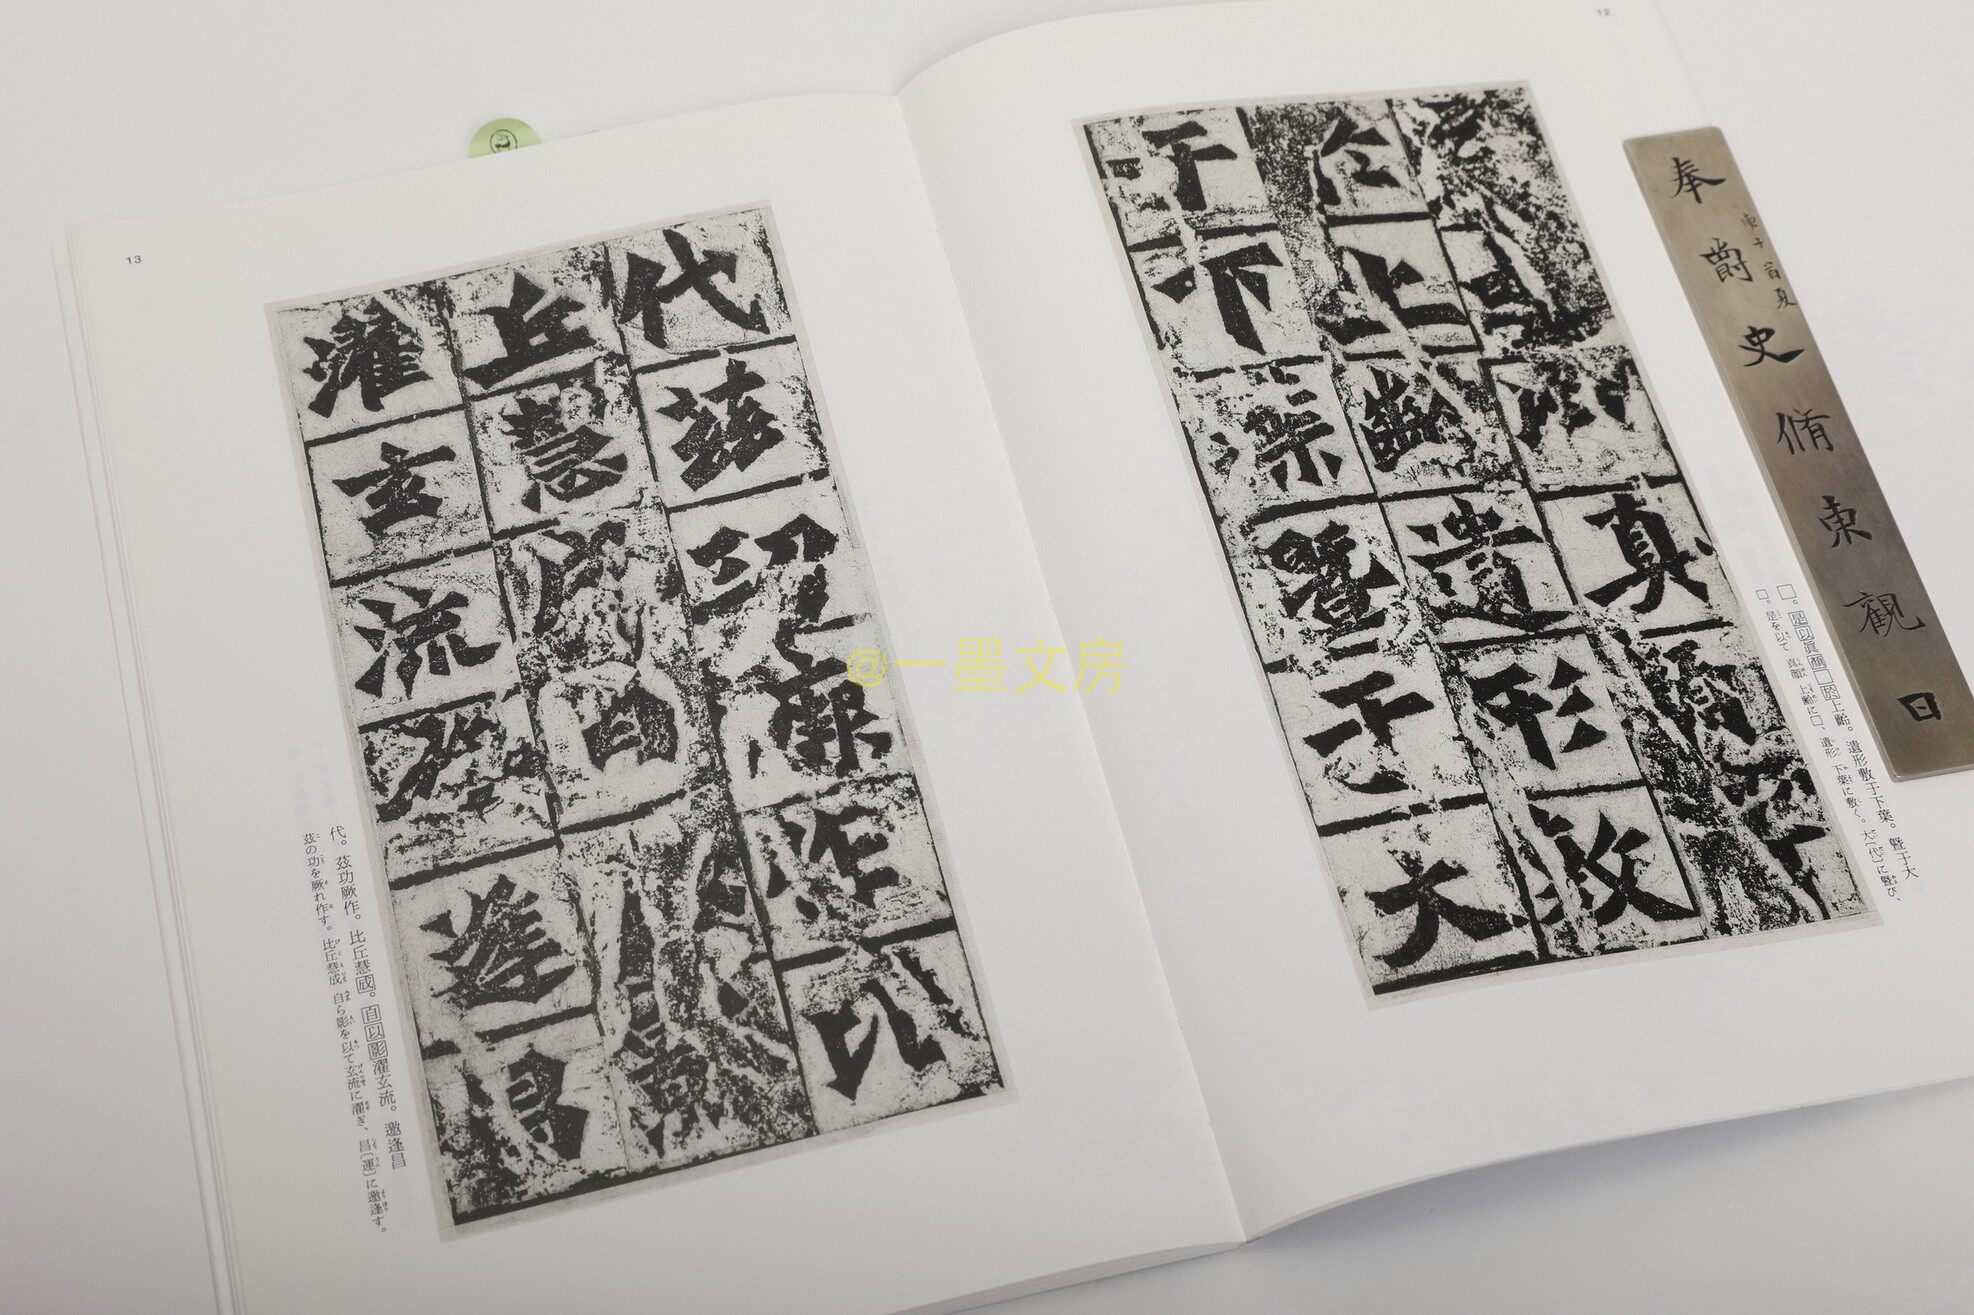 12
奉爵史脩東觀日
庚子首夏
是以真顔
於上齡遺形敷
于下葉暨于大
□。是以眞顏□於上齡。遺形敷于下葉。曁于大
□。是を以て 真顔 上齢に□、遺形 下葉に敷く。大〔代〕に曁び、
13
代茲功厥作比
丘慧成自以影
濯玄流邀逢昌
代。茲功厥作。比丘慧成。自以影濯玄流。邀逢昌
茲の功を厥れ作す。比丘慧成 自ら影を以て玄流に濯ぎ、昌〔運〕に邀逢す。
@一墨文房